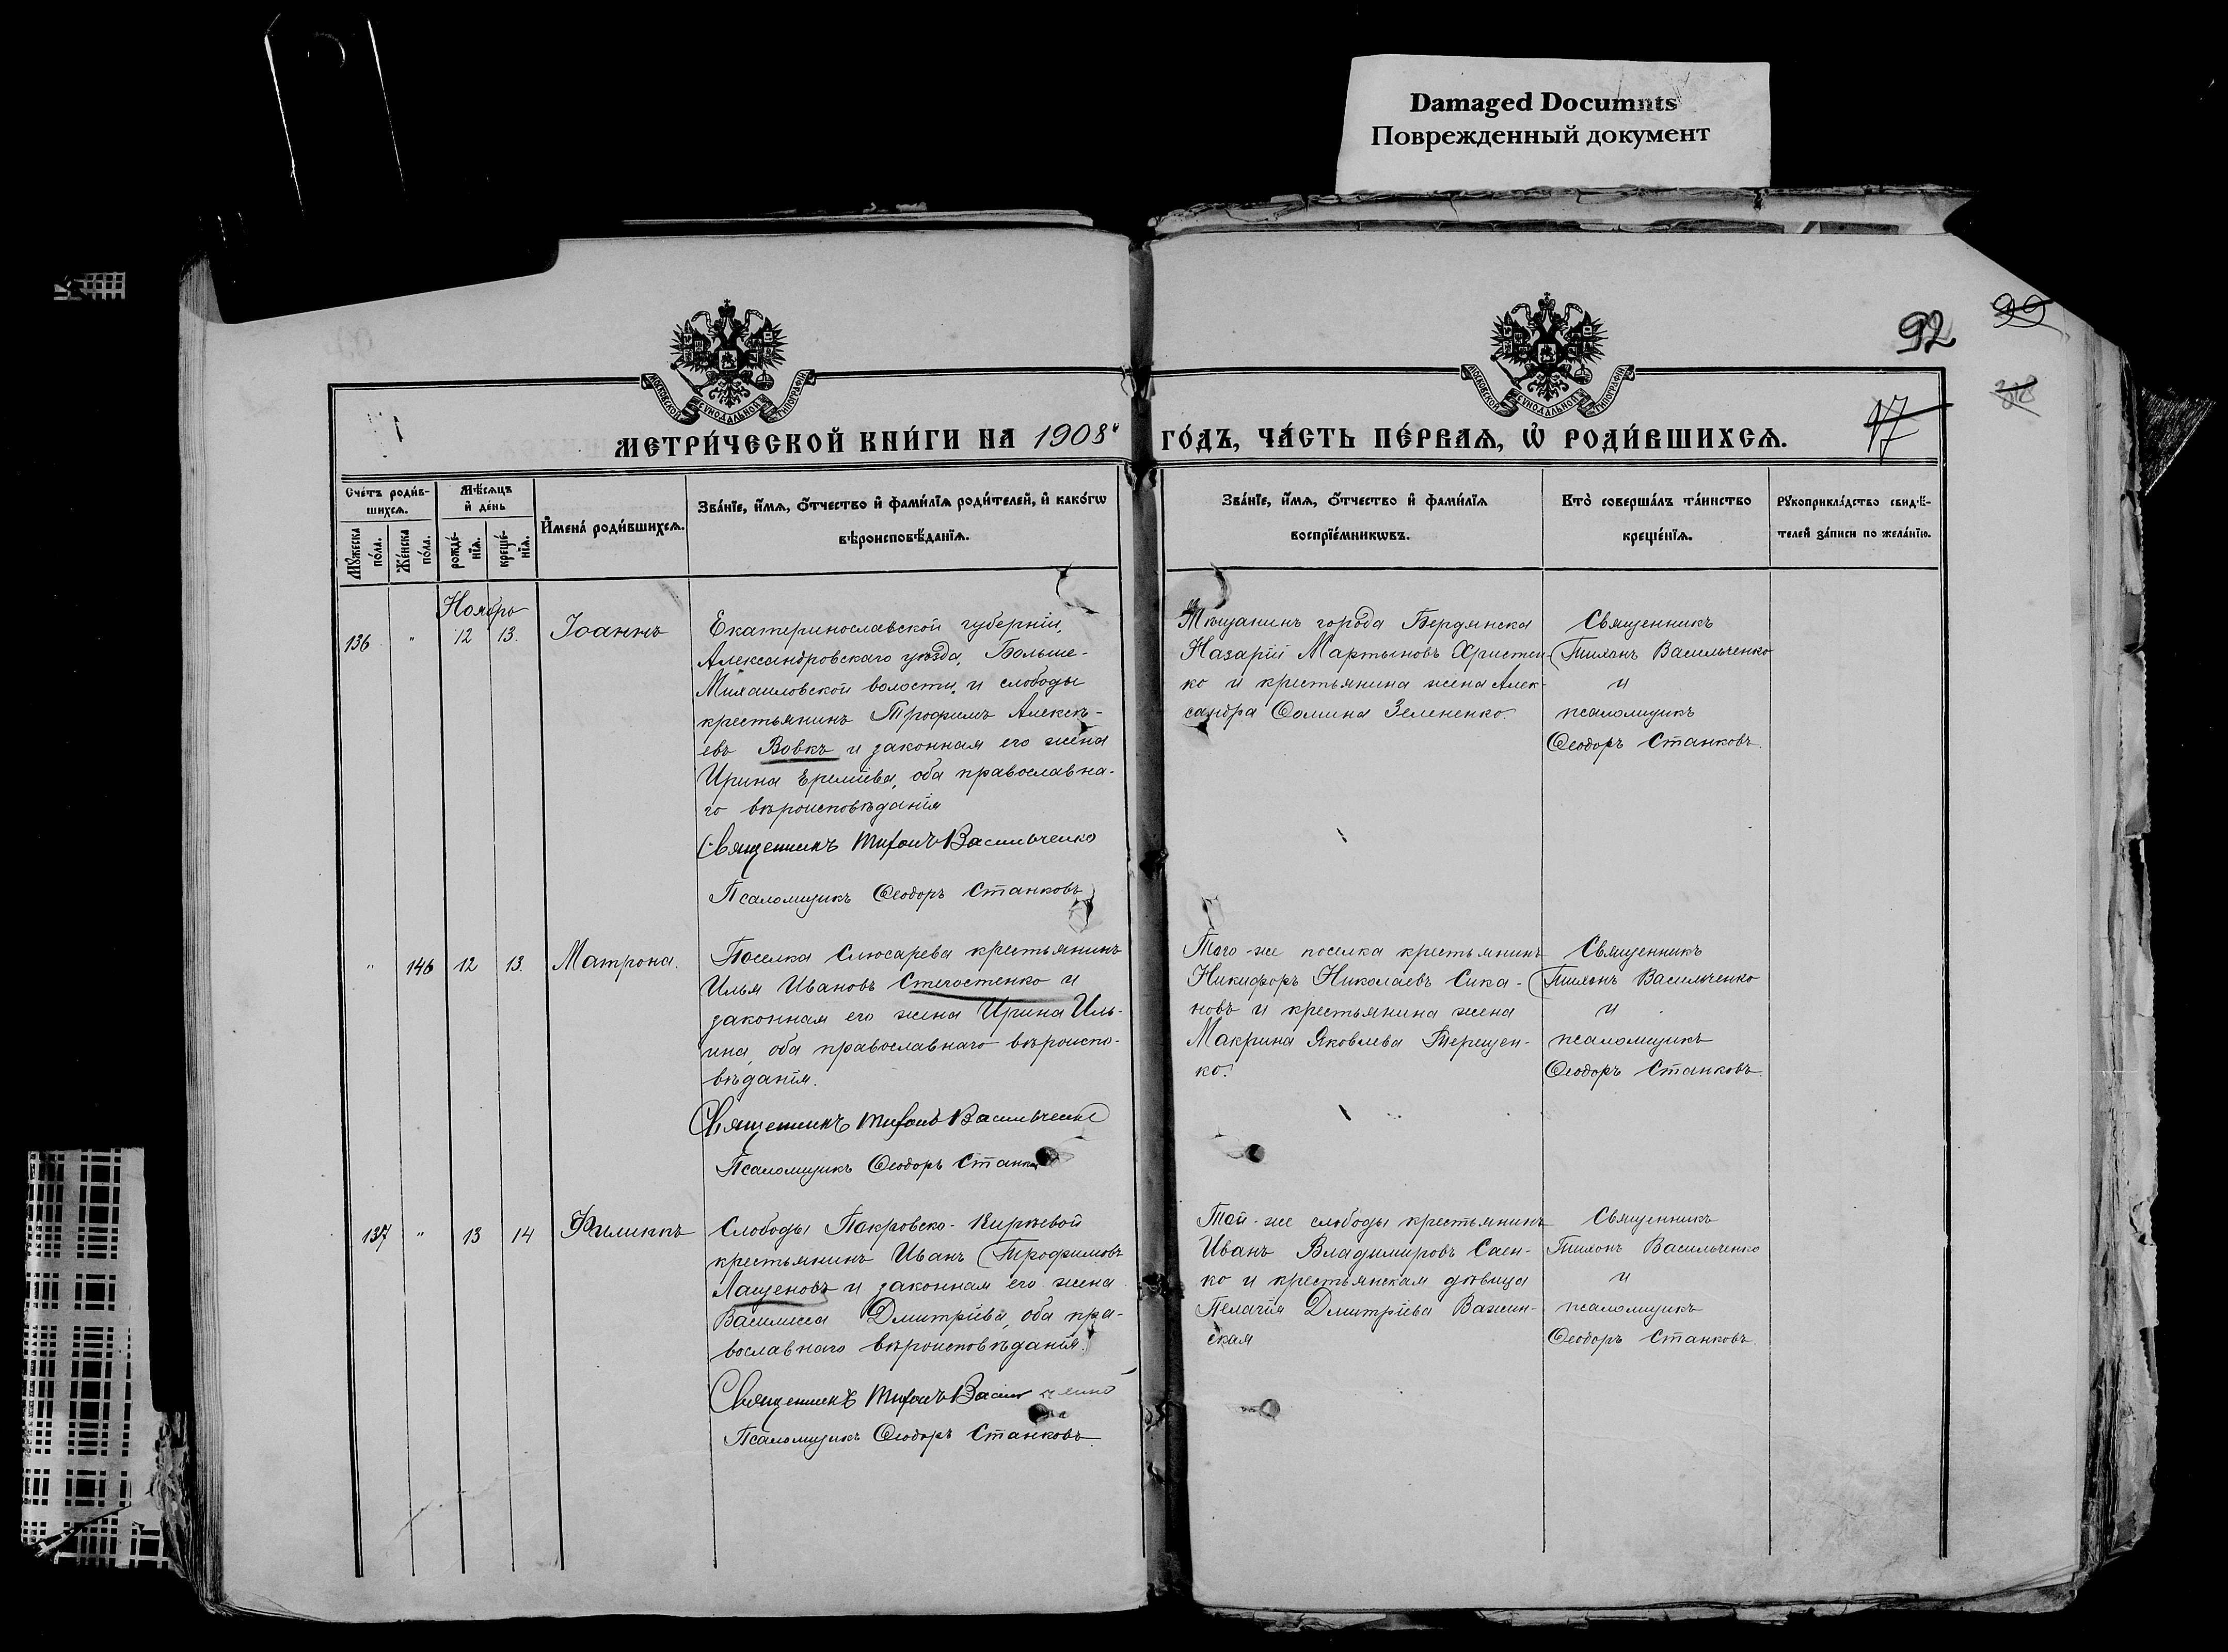 Damaged Documnts
Поврежденный документ
92
99
318
17
МОСКОВСКОЙ СѴНОДАЛЬНОЙ ТИПОГРАФІИ
МОСКОВСКОЙ СѴНОДАЛЬНОЙ ТИПОГРАФІИ
МЕТРИ́ЧЕСКОЙ КНИ́ГИ НА 1908й ГО́ДЪ, ЧА́СТЬ ПЕ́РВАѦ, Ѡ҆ РОДИ́ВШИХСѦ.
Сче́тъ роди́в-
шихсѧ.
Мѣ́сѧцъ
и҆ де́нь
Мꙋ́жеска
по́ла.
Же́нска
по́ла.
рожде́-
нїѧ.
креще́-
нїѧ.
И҆мена̀ роди́вшихсѧ.
Зва́нїе, и҆́мѧ, ѻ҆́тчество и҆ фами́лїѧ роди́телей, и҆ како́гѡ
вѣроисповѣ́данїѧ.
Зва́нїе, и҆́мѧ, ѻ҆́тчество и҆ фами́лїѧ
воспрїе́мникѡвъ.
Кто̀ соверша́лъ та́инство
креще́нїѧ.
Рꙋкоприкла́дство свидѣ́-
телей за́писи по жела́нїю.
Ноябрь
136 " 12 13. Іоаннъ
Екатеринославской губерніи,
Александровскаго уѣзда, Больше-
Михаиловской волости, и слободы
крестьянинъ Трофимъ Алексѣ-
евъ Вовкъ и законная его жена
Ирина Ереміева, оба православна-
го вѣроисповѣданія
Священникъ Тихонъ Васильченко
Псаломщикъ Ѳеодоръ Станковъ
Мѣщанинъ города Бердянска
Назарій Мартыновъ Христен-
ко и крестьянина жена Алек-
сандра Ѳомина Зелененко.
Священникъ
Тихонъ Васильченко
и
псаломщикъ
Ѳеодоръ Станковъ.
" 146 12 13. Матрона.
Поселка Слюсарева крестьянинъ
Илья Ивановъ Стегостенко и
законная его жена Ирина Иль-
ина, оба православнаго вѣроиспо-
вѣданія.
Священникъ Тихонъ Васильченко
Псаломщикъ Ѳеодоръ Станков
Того-же поселка крестьянинъ
Никифоръ Николаевъ Сика-
новъ и крестьянина жена
Макрина Яковлева Терещен-
ко.
Священникъ
Тихонъ Васильченко
и
псаломщикъ
Ѳеодоръ Станковъ.
137 " 13 14 Филиппъ
Слободы Покровско-Киреевой
крестьянинъ Иванъ Трофимовъ
Лащеновъ и законная его жена
Василисса Дмитріева, оба пра-
вославнаго вѣроисповѣданія.
Священникъ Тихонъ Васильченко
Псаломщикъ Ѳеодоръ Станковъ.
Той-же слободы крестьянинъ
Иванъ Владимировъ Саен-
ко и крестьянская дѣвица
Пелагія Дмитріева Важин-
ская
Священникъ
Тихонъ Васильченко
и
псаломщикъ
Ѳеодоръ Станковъ.